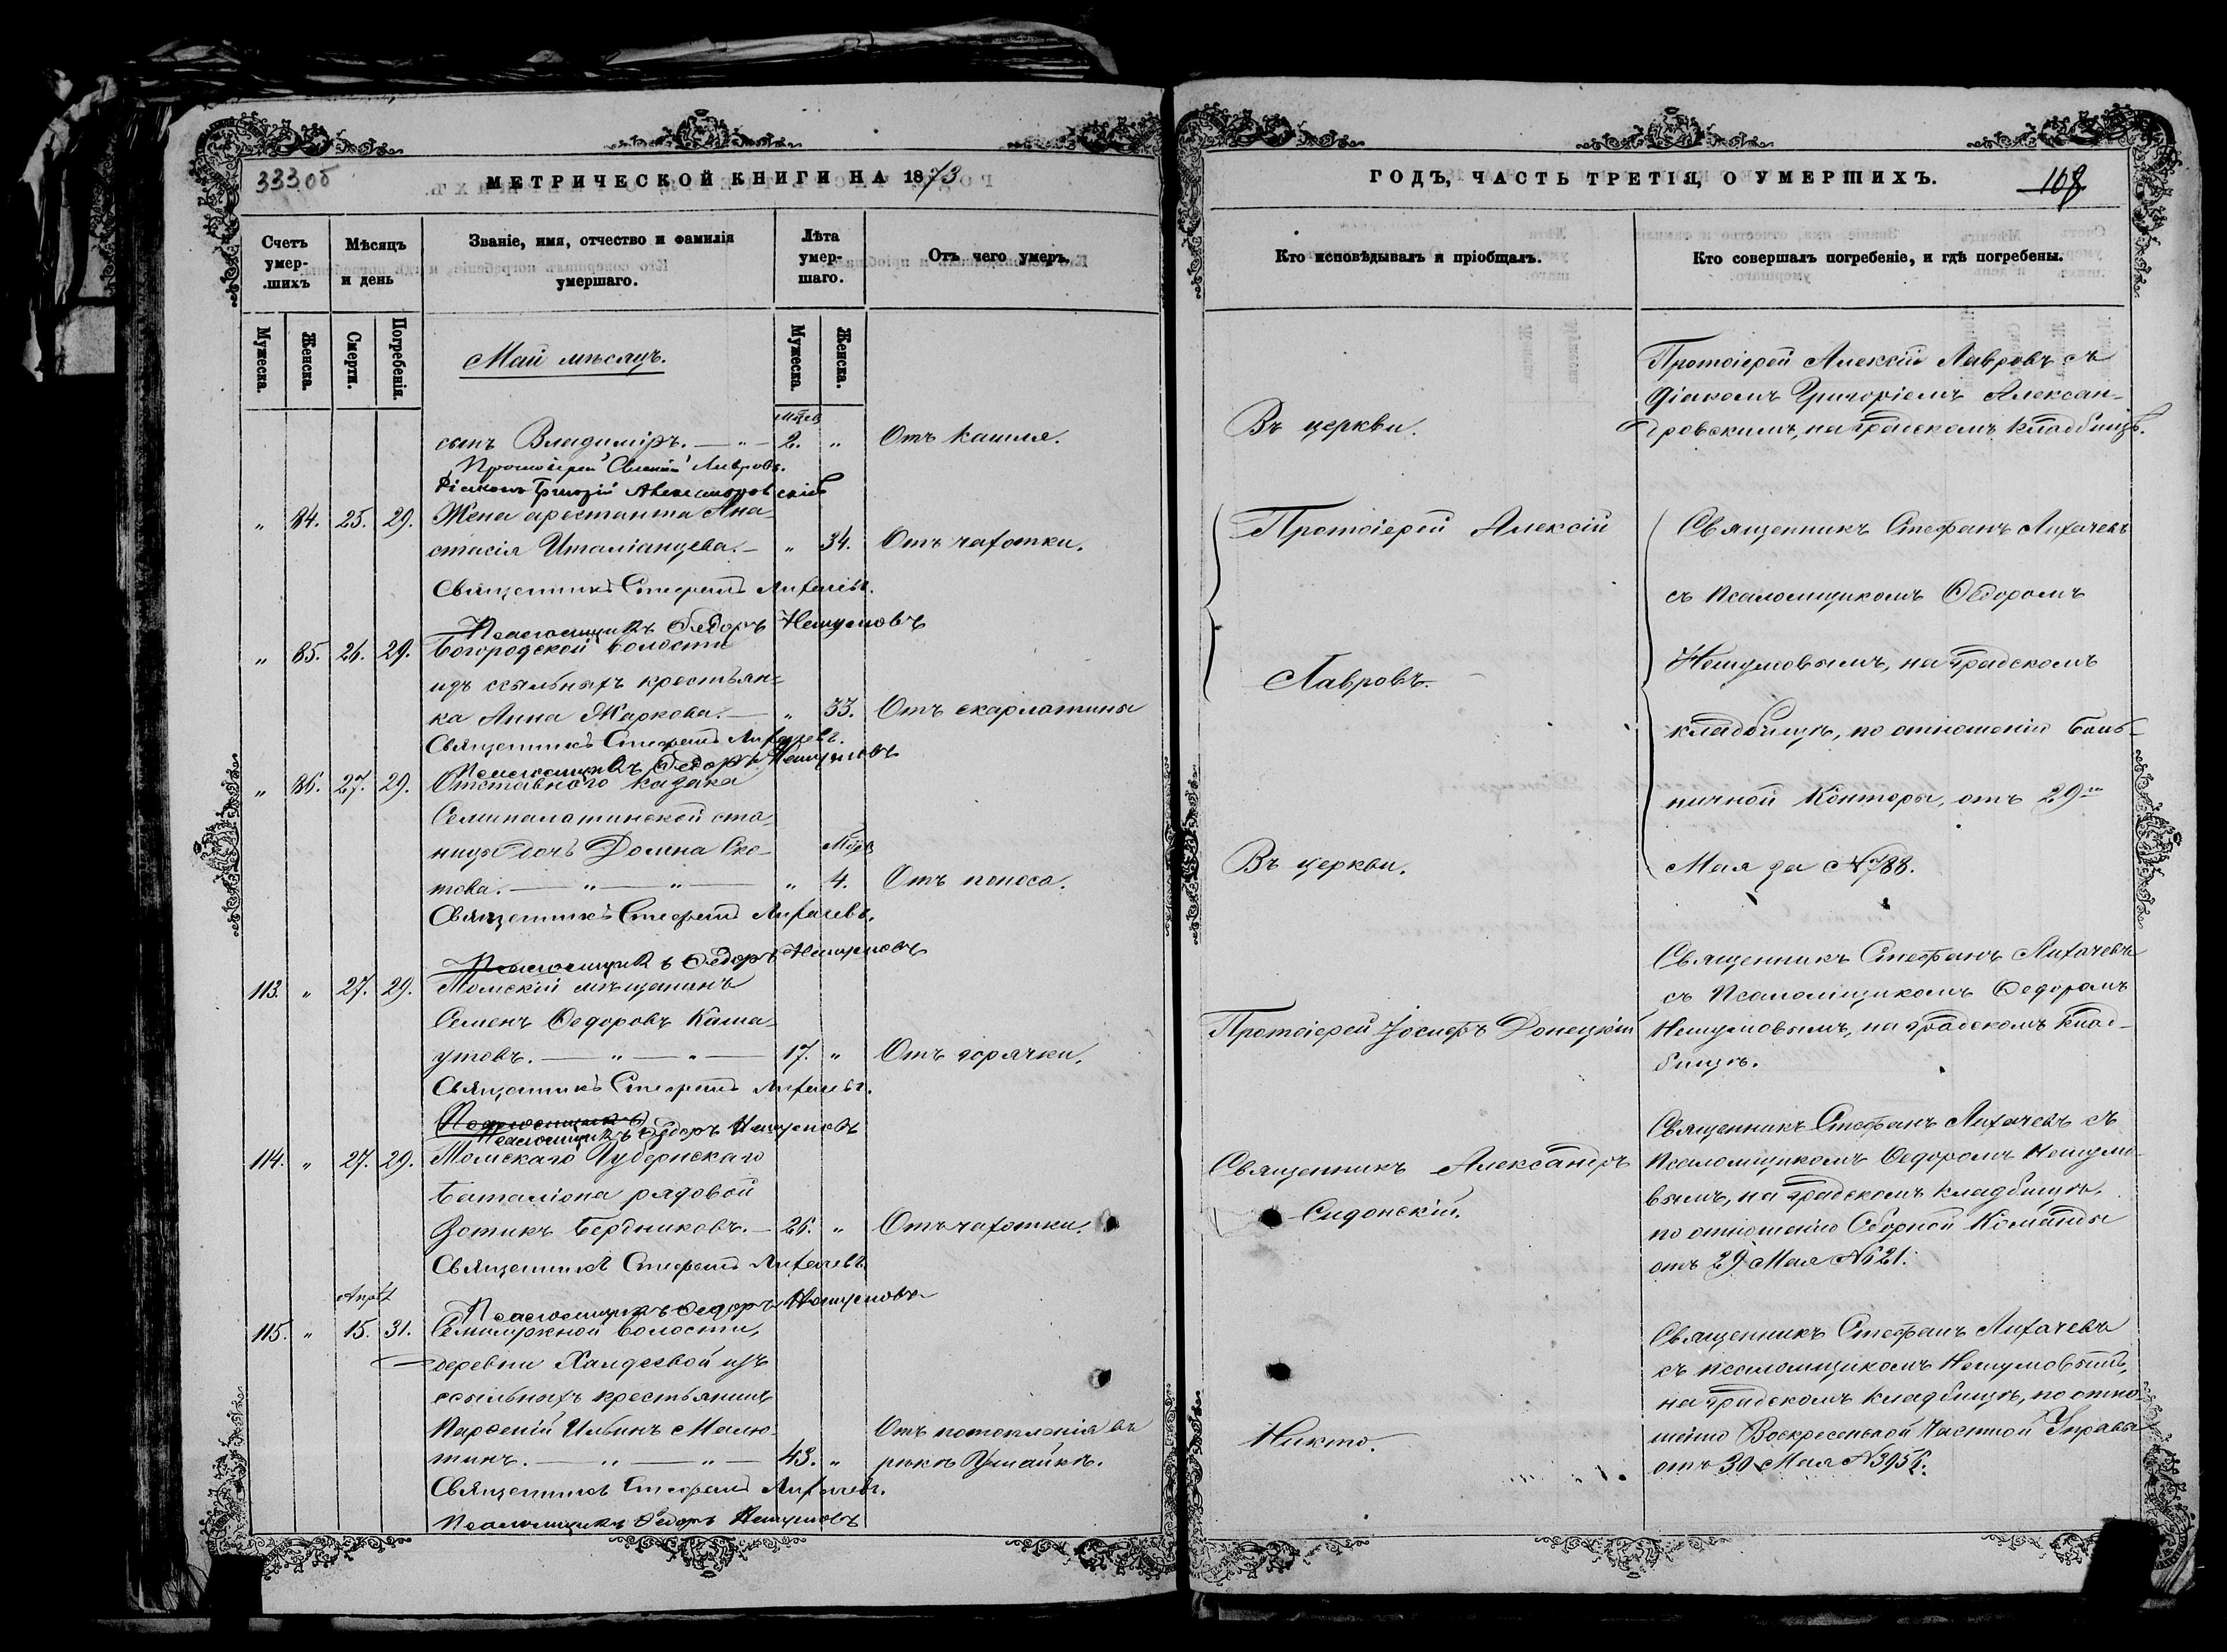 333 об
МЕТРИЧЕСКОЙ КНИГИ НА 1873
Счетъ умер-шихъ
Мѣсяцъ и день
Званіе, имя, отчество и фамилія умершаго.
Лѣта умер-шаго.
Отъ чего умеръ.
Мужеска.
Женска.
Смерти.
Погребенія.
Май мѣсяцъ.
Мужеска.
Женска.
мцев
сынъ Владиміръ. — „ — 2. „ Отъ кашля.
Протоіерей Алексій Лавровъ.
Діаконъ Григорій Александровскій
„ 84. 25. 29. Жена арестанта Ана-
стасія Италіанцева. — „ 34. Отъ чахотки.
Священникъ Стефанъ Лихачевъ.
Псаломщикъ Ѳедоръ Нешумовъ
„ 85. 26. 29. Богородской волости
изъ ссыльныхъ крестьян-
ка Анна Жаркова. — „ 33. Отъ скарлатины
Священникъ Стефанъ Лихачевъ.
Псаломщикъ Ѳедоръ Нешумовъ
„ 86. 27. 29. Отставнаго казака
Семипалатинской ста-
ницы дочь Домна Ско-
това. — „ — „ — „ 4. Отъ поноса.
Священникъ Стефанъ Лихачевъ.
Псаломщикъ Ѳедоръ Нешумовъ
113. „ 27. 29. Томскій мѣщанинъ
Семенъ Ѳедоровъ Каша-
утовъ. — „ — „ — 17. „ Отъ горячки.
Священникъ Стефанъ Лихачевъ.
Псаломщикъ Ѳедоръ Нешумовъ
114. „ 27. 29. Томскаго Губернскаго
баталіона рядовой
Зотикъ Бердниковъ. — 26. „ Отъ чахотки.
Священникъ Стефанъ Лихачевъ
Псаломщикъ Ѳедоръ Нешумовъ
Апрѣл
115. „ 15. 31. Семилужной волости,
деревни Халдеевой изъ
ссыльныхъ крестьянинъ
Парѳеній Ильинъ Малю-
тинъ. — „ — „ — 43. „ Отъ потопленія въ
рѣкѣ Ушайкѣ.
Священникъ Стефанъ Лихачевъ.
Псаломщикъ Ѳедоръ Нешумовъ
ГОДЪ, ЧАСТЬ ТРЕТІЯ, О УМЕРШИХЪ.
108.
Кто исповѣдывалъ и пріобщалъ.
Кто совершалъ погребеніе, и гдѣ погребены.
Протоіерей Алексій Лавровъ съ
діакономъ Григоріемъ Алексан-
Въ церкви.
дровскимъ, на градскомъ кладбищѣ.
Протоіерей Алексій
Лавровъ.
Священникъ Стефанъ Лихачевъ
съ псаломщикомъ Ѳедоромъ
Нешумовымъ, на градскомъ
кладбищѣ, по отношенію боль-
ничной Конторы, отъ 29го
Въ церкви.
Мая за № 788.
Священникъ Стефанъ Лихачевъ
съ Псаломщикомъ Ѳедоромъ
Протоіерей Іосифъ Донецкій
Нешумовымъ, на градскомъ клад-
бищѣ.
Священникъ Стефанъ Лихачевъ съ
Священникъ Александръ
Сидонскій.
Псаломщикомъ Ѳедоромъ Нешумо-
вымъ, на градскомъ кладбищѣ,
по отношенію Сборной Команды
отъ 29 Мая № 621.
Священникъ Стефанъ Лихачевъ
съ псаломщикомъ Нешумовымъ,
на градскомъ кладбищѣ, по отно-
Никто.
шенію Воскресенской Частной Управы
отъ 30 Мая №